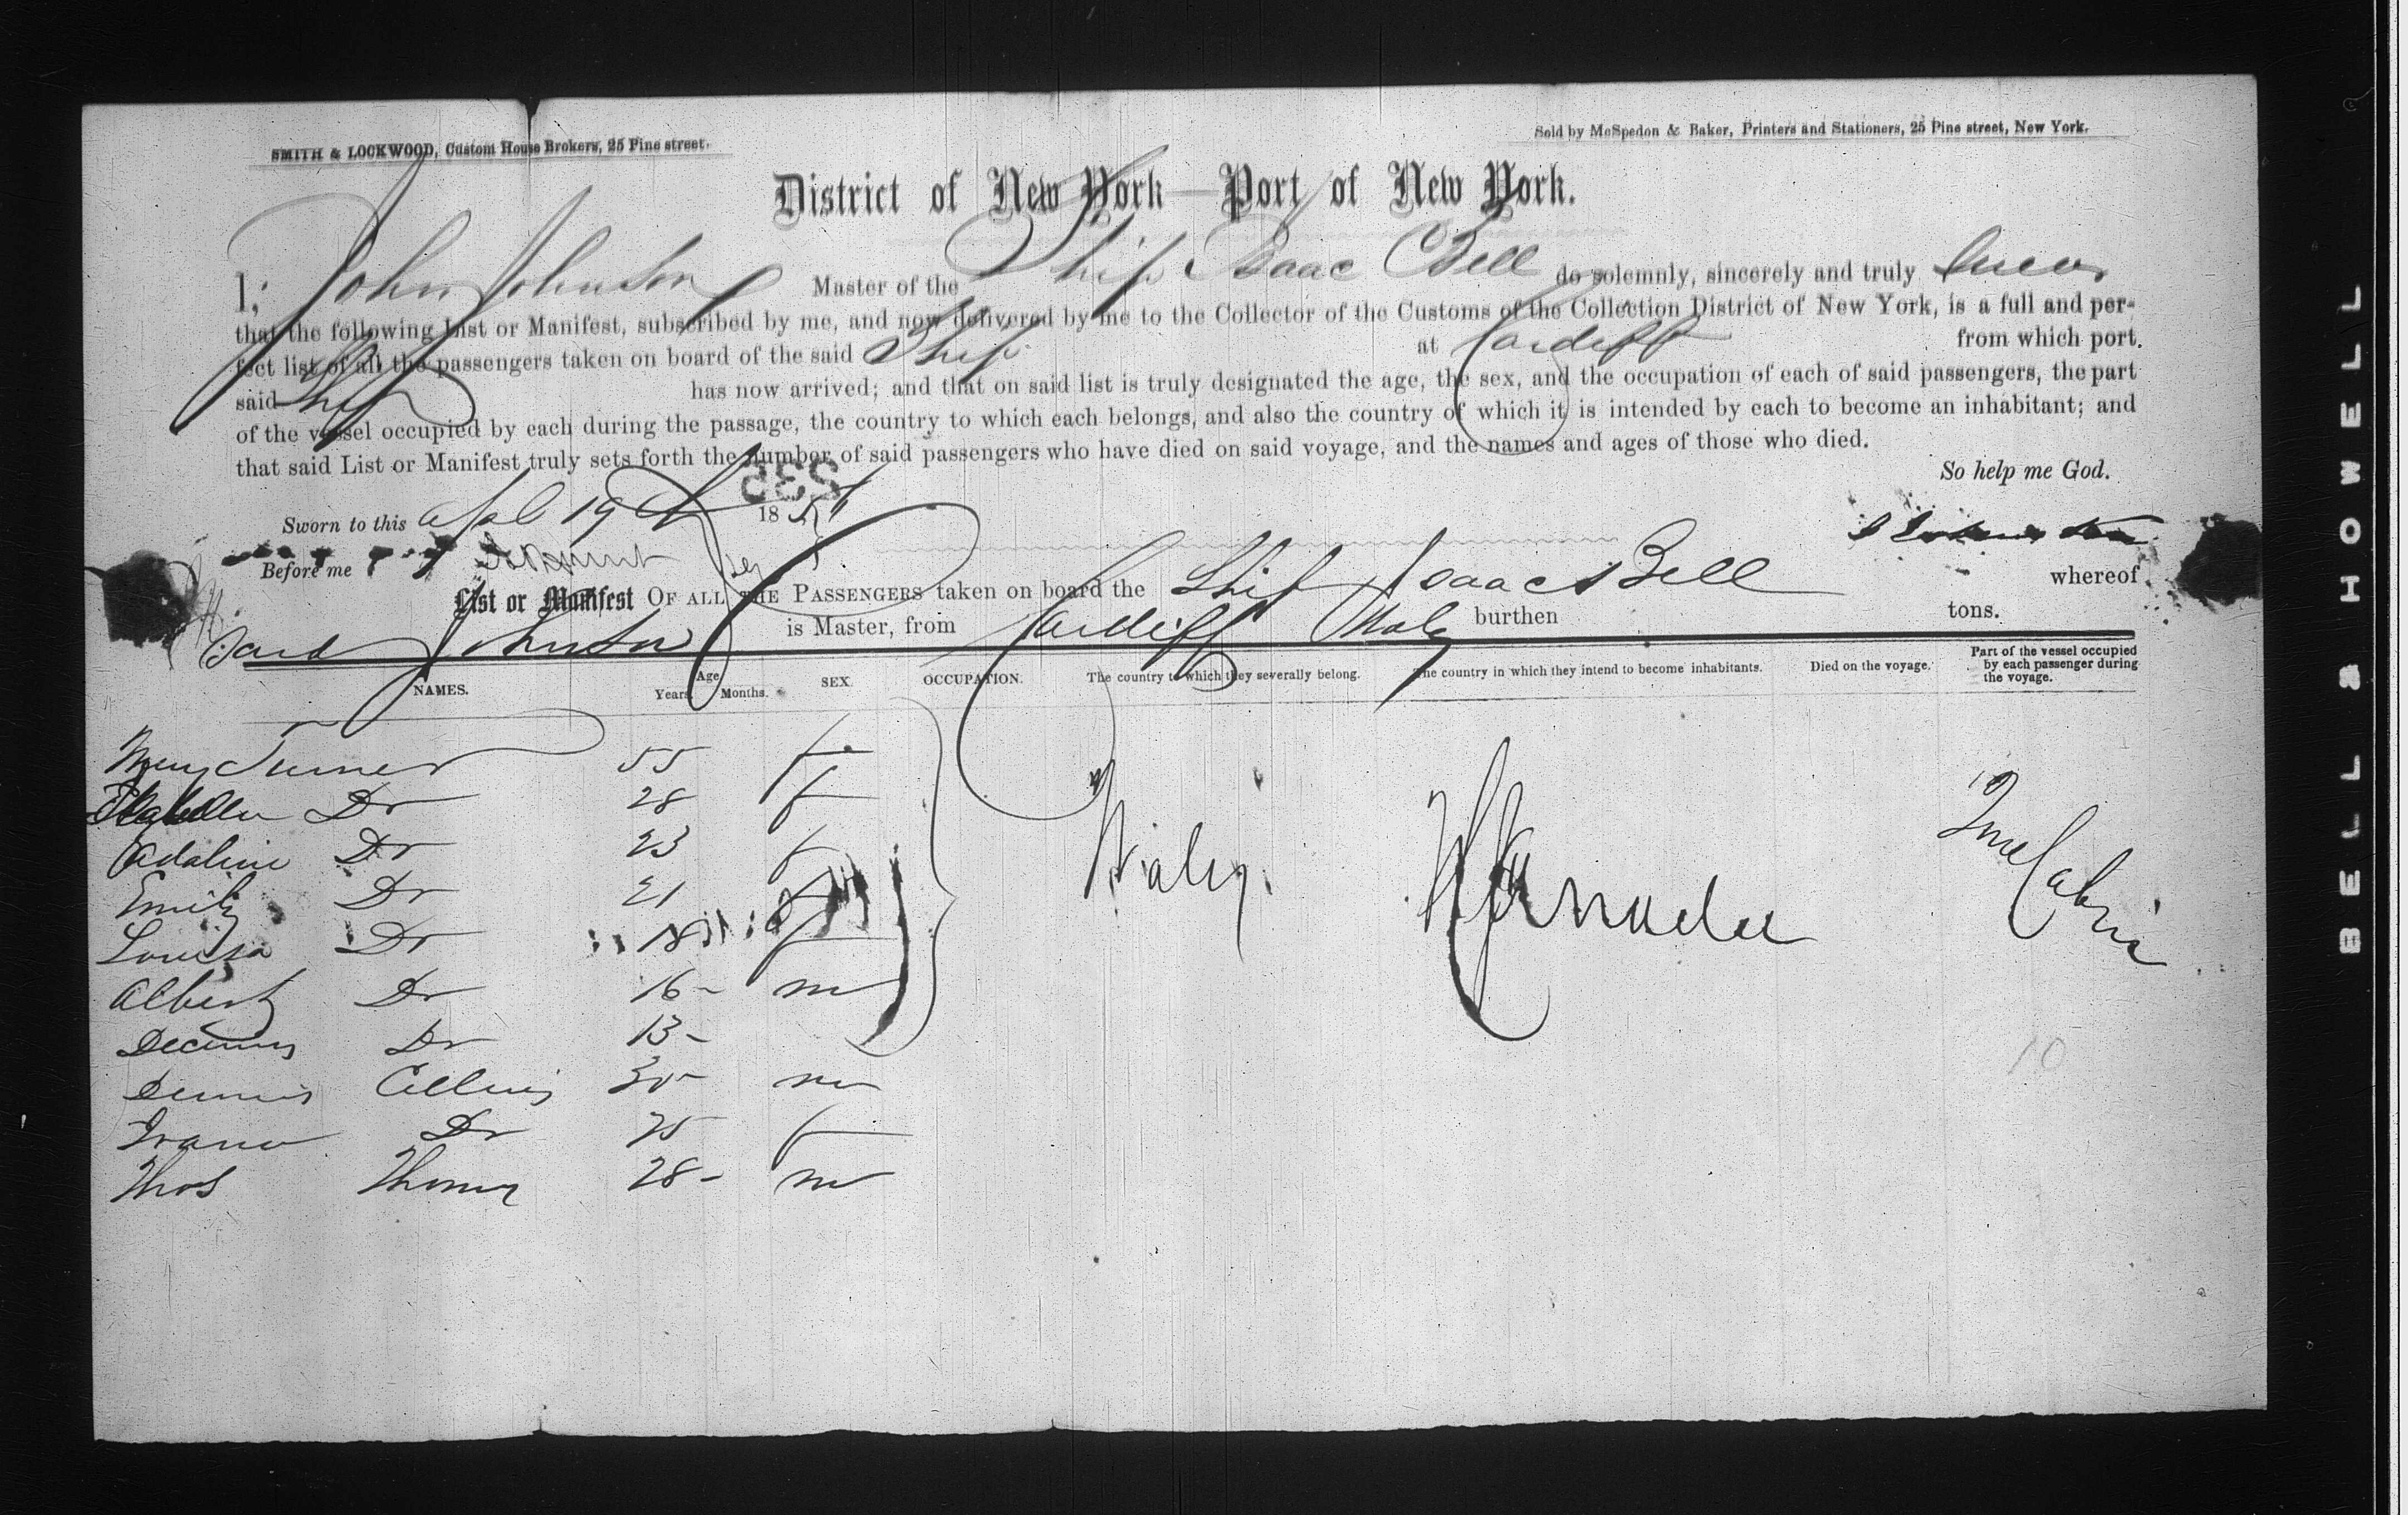 SMITH & LOCKWOOD, Custom House Brokers, 25 Pine street.
Sold by McSpedon & Baker, Printers and Stationers, 25 Pine street, New York.
District of New York—Port of New York.
I, John Johnson Master of the Ship Isaac Bell do solemnly, sincerely and truly swear
that the following List or Manifest, subscribed by me, and now delivered by me to the Collector of the Customs of the Collection District of New York, is a full and per-
fect list of all the passengers taken on board of the said Ship at Cardiff from which port
said Ship has now arrived; and that on said list is truly designated the age, the sex, and the occupation of each of said passengers, the part
of the vessel occupied by each during the passage, the country to which each belongs, and also the country of which it is intended by each to become an inhabitant; and
that said List or Manifest truly sets forth the number of said passengers who have died on said voyage, and the names and ages of those who died.
So help me God.
535
Sworn to this 19 18
Before me
List or Manifest OF ALL THE PASSENGERS taken on board the Ship Isaac Bell whereof
Said Johnson is Master, from Cardiff Wales burthen tons.
NAMES. Age Years. Months. SEX. OCCUPATION. The country to which they severally belong. The country in which they intend to become inhabitants. Died on the voyage. Part of the vessel occupied by each passenger during the voyage.
Mary Turner 55 f
Do 28 f
Adaline Do 23 f
Emily Do 21 f Wales Canada
Louisa Do 18 f
Albert Do 16 m
Decimus Do 13
Dennis 30 m
Do 25 f
Thos Thomas 28 m
10
BELL & HOWELL